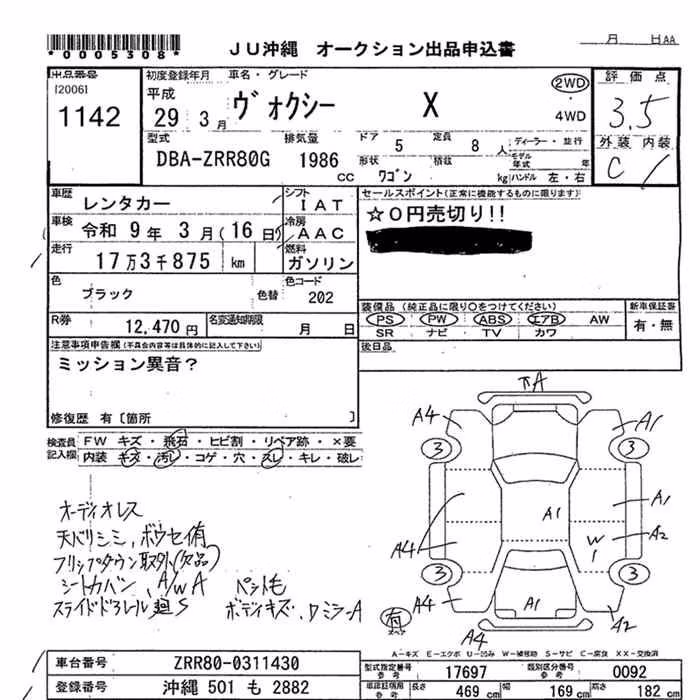 *0005308*
JU沖縄 オークション出品申込書
月 日AA
出品番号
[2006]
1142
初度登録年月
平成
29 3月
車名・グレード
ヴォクシー X
2WD
4WD
評価点
3.5
外装 内装
C /
型式
DBA-ZRR80G
排気量
1986
CC
ドア 5
定員 8人
形状
ワゴン
積載
kg
ディーラー・並行
モデル年式 年
ハンドル 左・右
車歴 レンタカー
シフト
IAT
車検 令和 9年 3月(16日)
冷房
AAC
走行 17万3千875 km
燃料
ガソリン
色
ブラック
色替
色コード
202
R券 12,470円
名変通知期限
月 日
セールスポイント(正常に機能するものに限ります)
☆0円売切り!!
装備品(純正品に限り○をつけてください)
PS PW ABS エアB AW
SR ナビ TV カワ
新車保証書
有・無
後日品
注意事項申告欄(不具合内容等は具体的に記入して下さい)
ミッション異音?
修復歴 有〔箇所 〕
検査員記入欄
FW キズ・飛石・ヒビ割・リペア跡・×要
内装 キズ・汚レ・コゲ・穴・スレ・キレ・破レ
オーディオレス
天バリシミ、ボウセイ有
フリップダウン取外(欠品)
シートカバン、A/W A ペット毛
スライドドアレール S ボディキズ、ワミラーA
↑A
A4 A1
3 3
A1 A1
A4 W1 A2
3 3
A4 A1 A2
有
スペア
A4
A-キズ E-エクボ U-凹み W-補修跡 S-サビ C-腐食 XX-交換済
車台番号 ZRR80-0311430
登録番号 沖縄 501 も 2882
型式指定番号
参考
17697
類別区分番号
参考
0092
車両証明用
参考
長さ 469 cm 幅 169 cm 高さ 182 cm